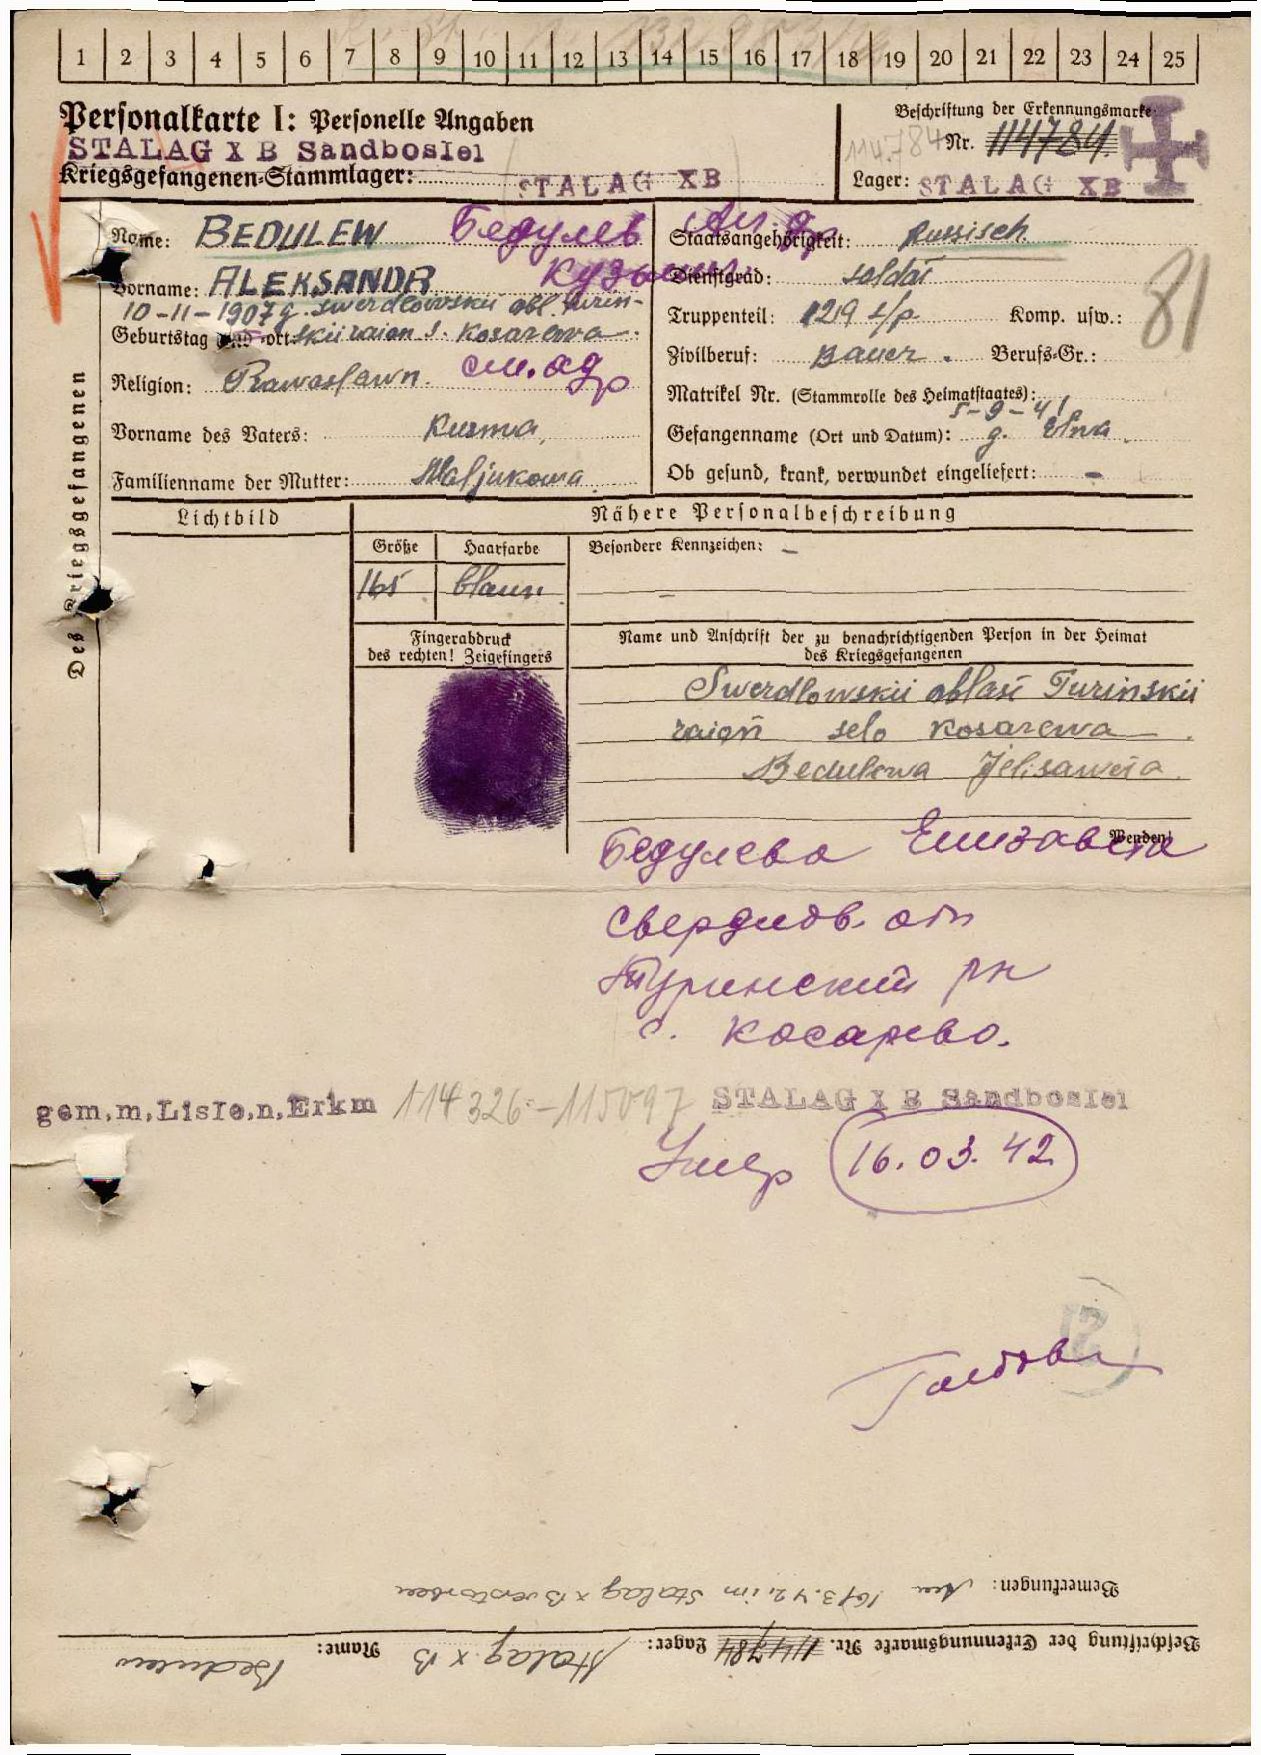 1 2 3 4 5 6 7 8 9 10 11 12 13 14 15 16 17 18 19 20 21 22 23 24 25
Personalkarte I: Personelle Angaben
STALAG X B Sandbostel
Kriegsgefangenen-Stammlager: STALAG XB
Beschriftung der Erkennungsmarke
114.784 Nr. 114784.
Lager: STALAG XB
Des Kriegsgefangenen
Name: BEDULEW Бедулев Ал-др
Vorname: ALEKSANDR Кузьмич
10-11-1907g. swerdlowskii obl. Turin-
Geburtstag und -ort: skii raion s. Kosarewa
Religion: Prawoslawn. см. ад
Vorname des Vaters: Kusma,
Familienname der Mutter: Maljukowa
Staatsangehörigkeit: Russisch.
Dienstgrad: soldat
Truppenteil: 1219 s/p. Komp. usw.:
81
Zivilberuf: Bauer. Berufs-Gr.:
Matrikel Nr. (Stammrolle des Heimatstaates):
5-9-41
Gefangenname (Ort und Datum): g. Elna
Ob gesund, krank, verwundet eingeliefert: -
Lichtbild
Nähere Personalbeschreibung
Größe Haarfarbe Besondere Kennzeichen: -
165 blaun
Fingerabdruck
des rechten! Zeigefingers
Name und Anschrift der zu benachrichtigenden Person in der Heimat
des Kriegsgefangenen
Swerdlowskii oblast Turinskii
raion selo Kosarewa
Bedulewa Jelisaweta
Wenden!
Бедулева Елизавета
Свердлов. обл
Туринский рн
с. Косарево.
gem.m.Liste.n.Erkm 114326-115097 STALAG X B Sandbostel
Умер 16.03.42
Bemerkungen: Am 16/3.42. im Stalag X B verstorben
Beschriftung der Erkennungsmarke Nr. 114784 Lager: Stalag X B Name: Bedulew